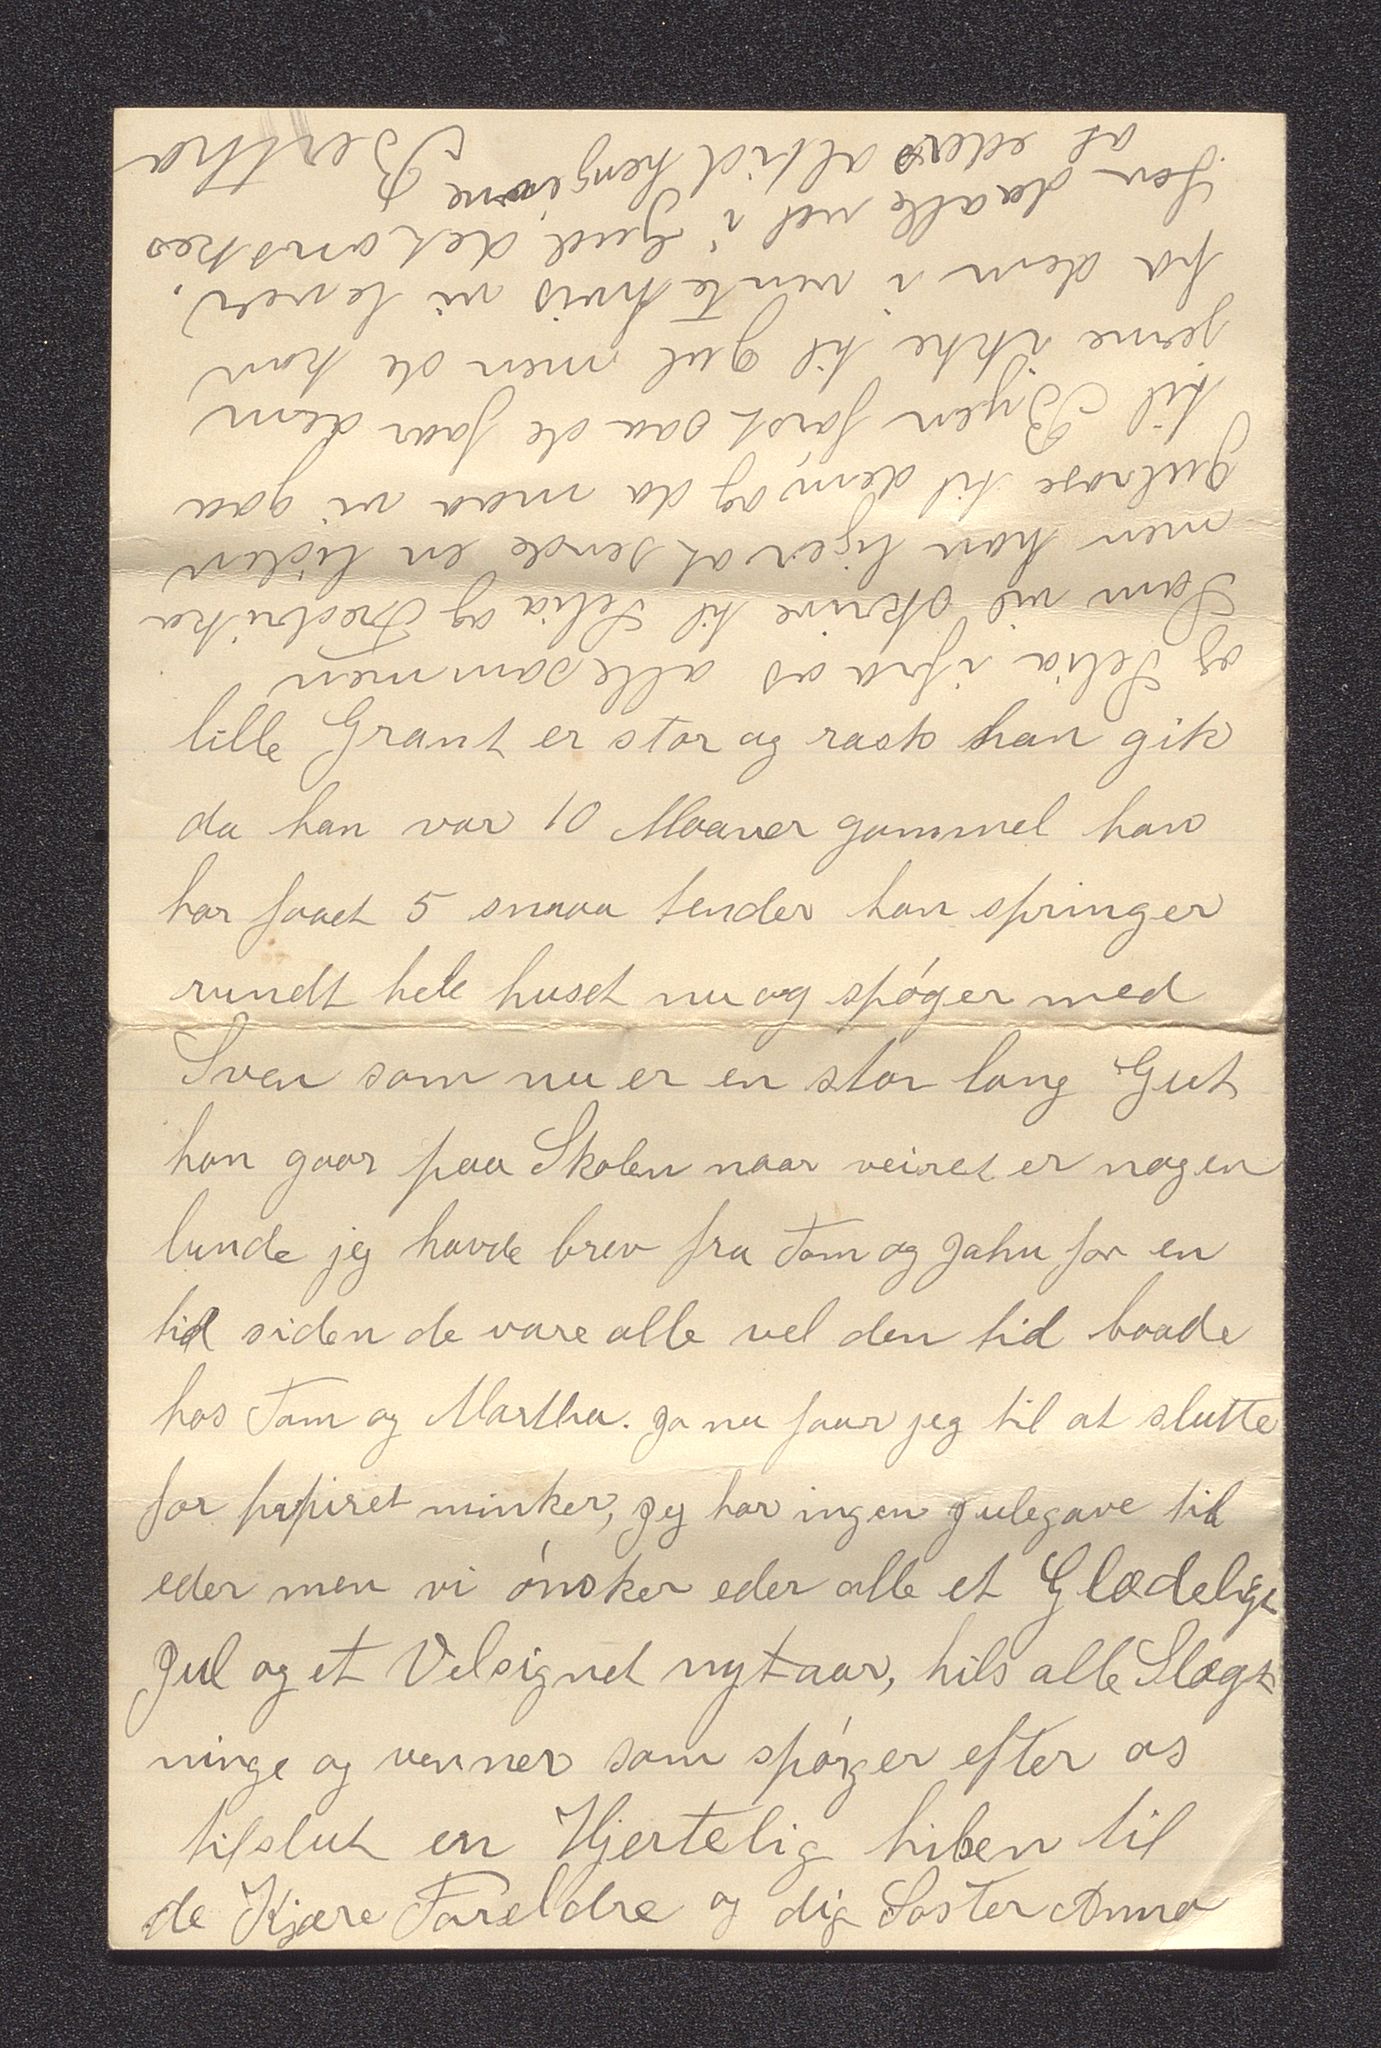 lille Grant er stor og rask han gik
da han var 10 Maaner gammel han
har faaet 5 smaa tender han springer
rundt hele huset nu og spøger med
Sven som nu er en stor lang Gut
han gaar paa Skolen naar veiret er nogen
lunde jeg havde brev fra Tom og John for en
tid siden de vare alle vel den tid baade
hos Tom og Martha. Ja nu faar jeg til at slutte
for papiret minker, Jeg har ingen Julegave til
eder men vi ønsker eder alle et Glædeligt
Jul og et Velsignet nyt aar, hils alle Slægt
ninge og venner som spørger efter os
tilslut en Hjertelig hilsen til
de Kjære Foreldre og dig Søster Anna
og Selia ifra os allesammen
Sam vil skrive til Selia og Fredrika
men han liger at sende en liden
Julrose til dem, og da maa vi gaa
til Byen først saa de faar dem
jerne ikke til Jul men de kan
ha dem i vente hvis vi lever,
Lev da alle vel i Gud det ønskes
af eders altid hengivne Bertha